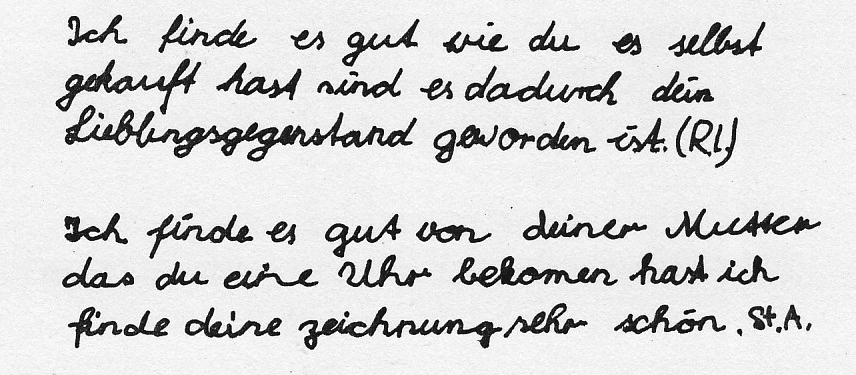 Ich finde es gut wie du es selbst
gekauft hast und es dadurch dein
Lieblingsgegenstand geworden ist. (R.I.)
Ich finde es gut von deiner Mutter
das du eine Uhr bekomen hast ich
finde deine zeichnung sehr schön. St.A.